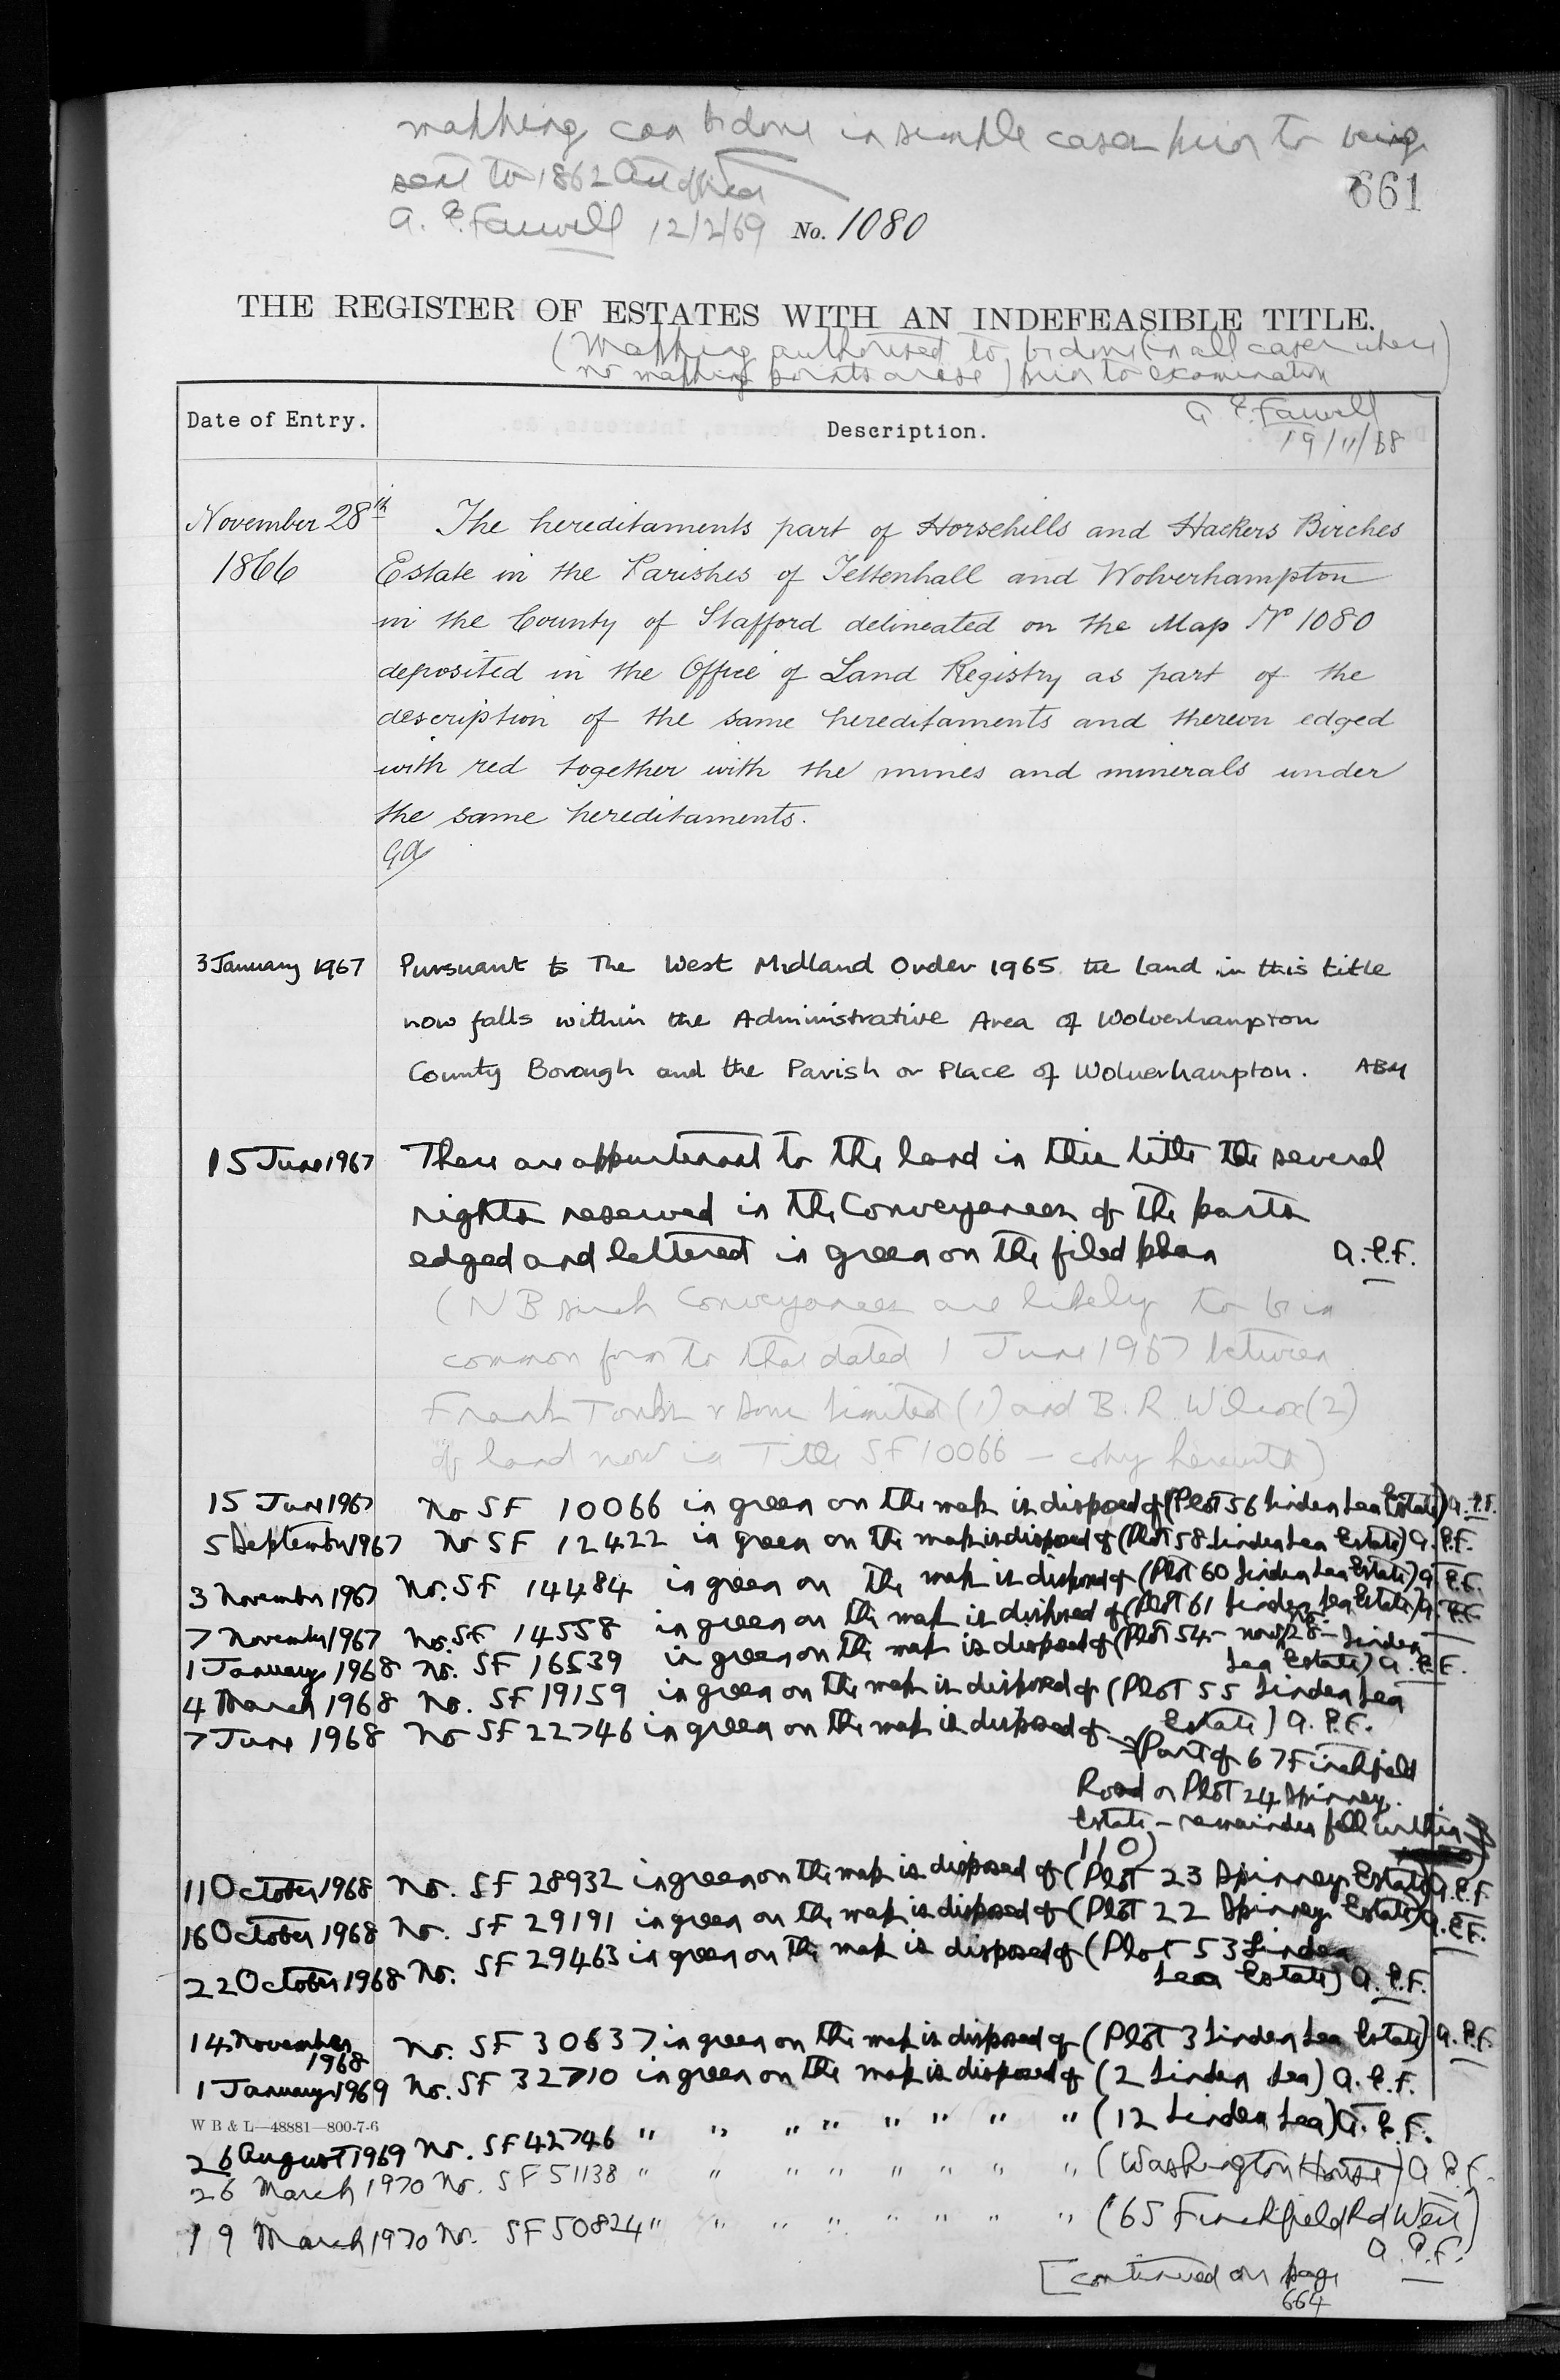 mapping can be done in simple cases prior to being
sent to 1862 Act
661
A. E. Farwell 12/2/69 No. 1080
THE REGISTER OF ESTATES WITH AN INDEFEASIBLE TITLE.
(Mapping authorised to be done (in all cases where
no mapping points arise) prior to examination)
A E. Farwell
19/11/68
Date of Entry.
Description.
November 28th
1866
The hereditaments part of Horsehills and Hackers Birches
Estate in the Parishes of Tettenhall and Wolverhampton
in the County of Stafford delineated on the Map No 1080
deposited in the Office of Land Registry as part of the
description of the same hereditaments and thereon edged
with red together with the mines and minerals under
the same hereditaments.
3 January 1967 Pursuant to The West Midland Order 1965 the land in this title
now falls within the Administrative Area of Wolverhampton
County Borough and the Parish or Place of Wolverhampton. ABM
15 June 1967 There are appurtenant to the land in this title the several
rights reserved in the Conveyances of the parts
edged and lettered in green on the filed plan A.E.F.
(NB such Conveyances are likely to be in
common form to that dated 1 June 1967 between
Frank Tonks & Sons Limited (1) and B. R. Wilcox (2)
of land now in Title SF 10066 – copy herewith)
15 June 1967 No SF 10066 in green on the map is disposed of (Plot 56 Linden Lea Estate) A.E.F.
5 September 1967 No SF 12422 in green on the map is disposed of (Plot 58 Linden Lea Estate) A.E.F.
3 November 1967 No. SF 14484 in green on the map is disposed of (Plot 60 Linden Lea Estate) A.E.F.
7 November 1967 No. SF 14558 in green on the map is disposed of (Plot 61 Linden Lea Estate) A.E.F.
1 January 1968 No. SF 16539 in green on the map is disposed of (Plot 54 – now 28 – Linden
Lea Estate) A.E.F.
4 March 1968 No. SF 19159 in green on the map is disposed of (Plot 55 Linden Lea
Estate) A.E.F.
7 June 1968 No SF 22746 in green on the map is disposed of → (Part of 67 Finchfield
Road or Plot 24 Spinney
Estate – remainder fell within
110)
11 October 1968 No. SF 28932 in green on the map is disposed of (Plot 23 Spinney Estate) A.E.F.
16 October 1968 No. SF 29191 in green on the map is disposed of (Plot 22 Spinney Estate) A.E.F.
22 October 1968 No. SF 29463 in green on the map is disposed of (Plot 53 Linden
Lea Estate) A.E.F.
14 November
1968 No. SF 30637 in green on the map is disposed of (Plot 3 Linden Lea Estate) A.E.F.
1 January 1969 No. SF 32710 in green on the map is disposed of (2 Linden Lea) A.E.F.
W B & L—48881—800-7-6
26 August 1969 No. SF 42746 " " " " " " " " (12 Linden Lea) A.E.F.
26 March 1970 No. SF 51138 " " " " " " " " (Washington House) A.E.F.
19 March 1970 No. SF 50824 " " " " " " " " (65 Finchfield Rd West)
A.E.F.
[continued on page
664